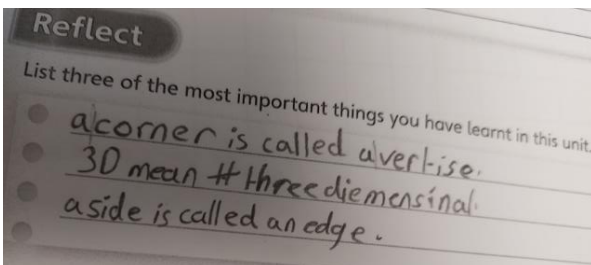 Reflect
List three of the most important things you have learnt in this unit.
a corner is called a vertise.
3D mean three diemensinal.
a side is called an edge.